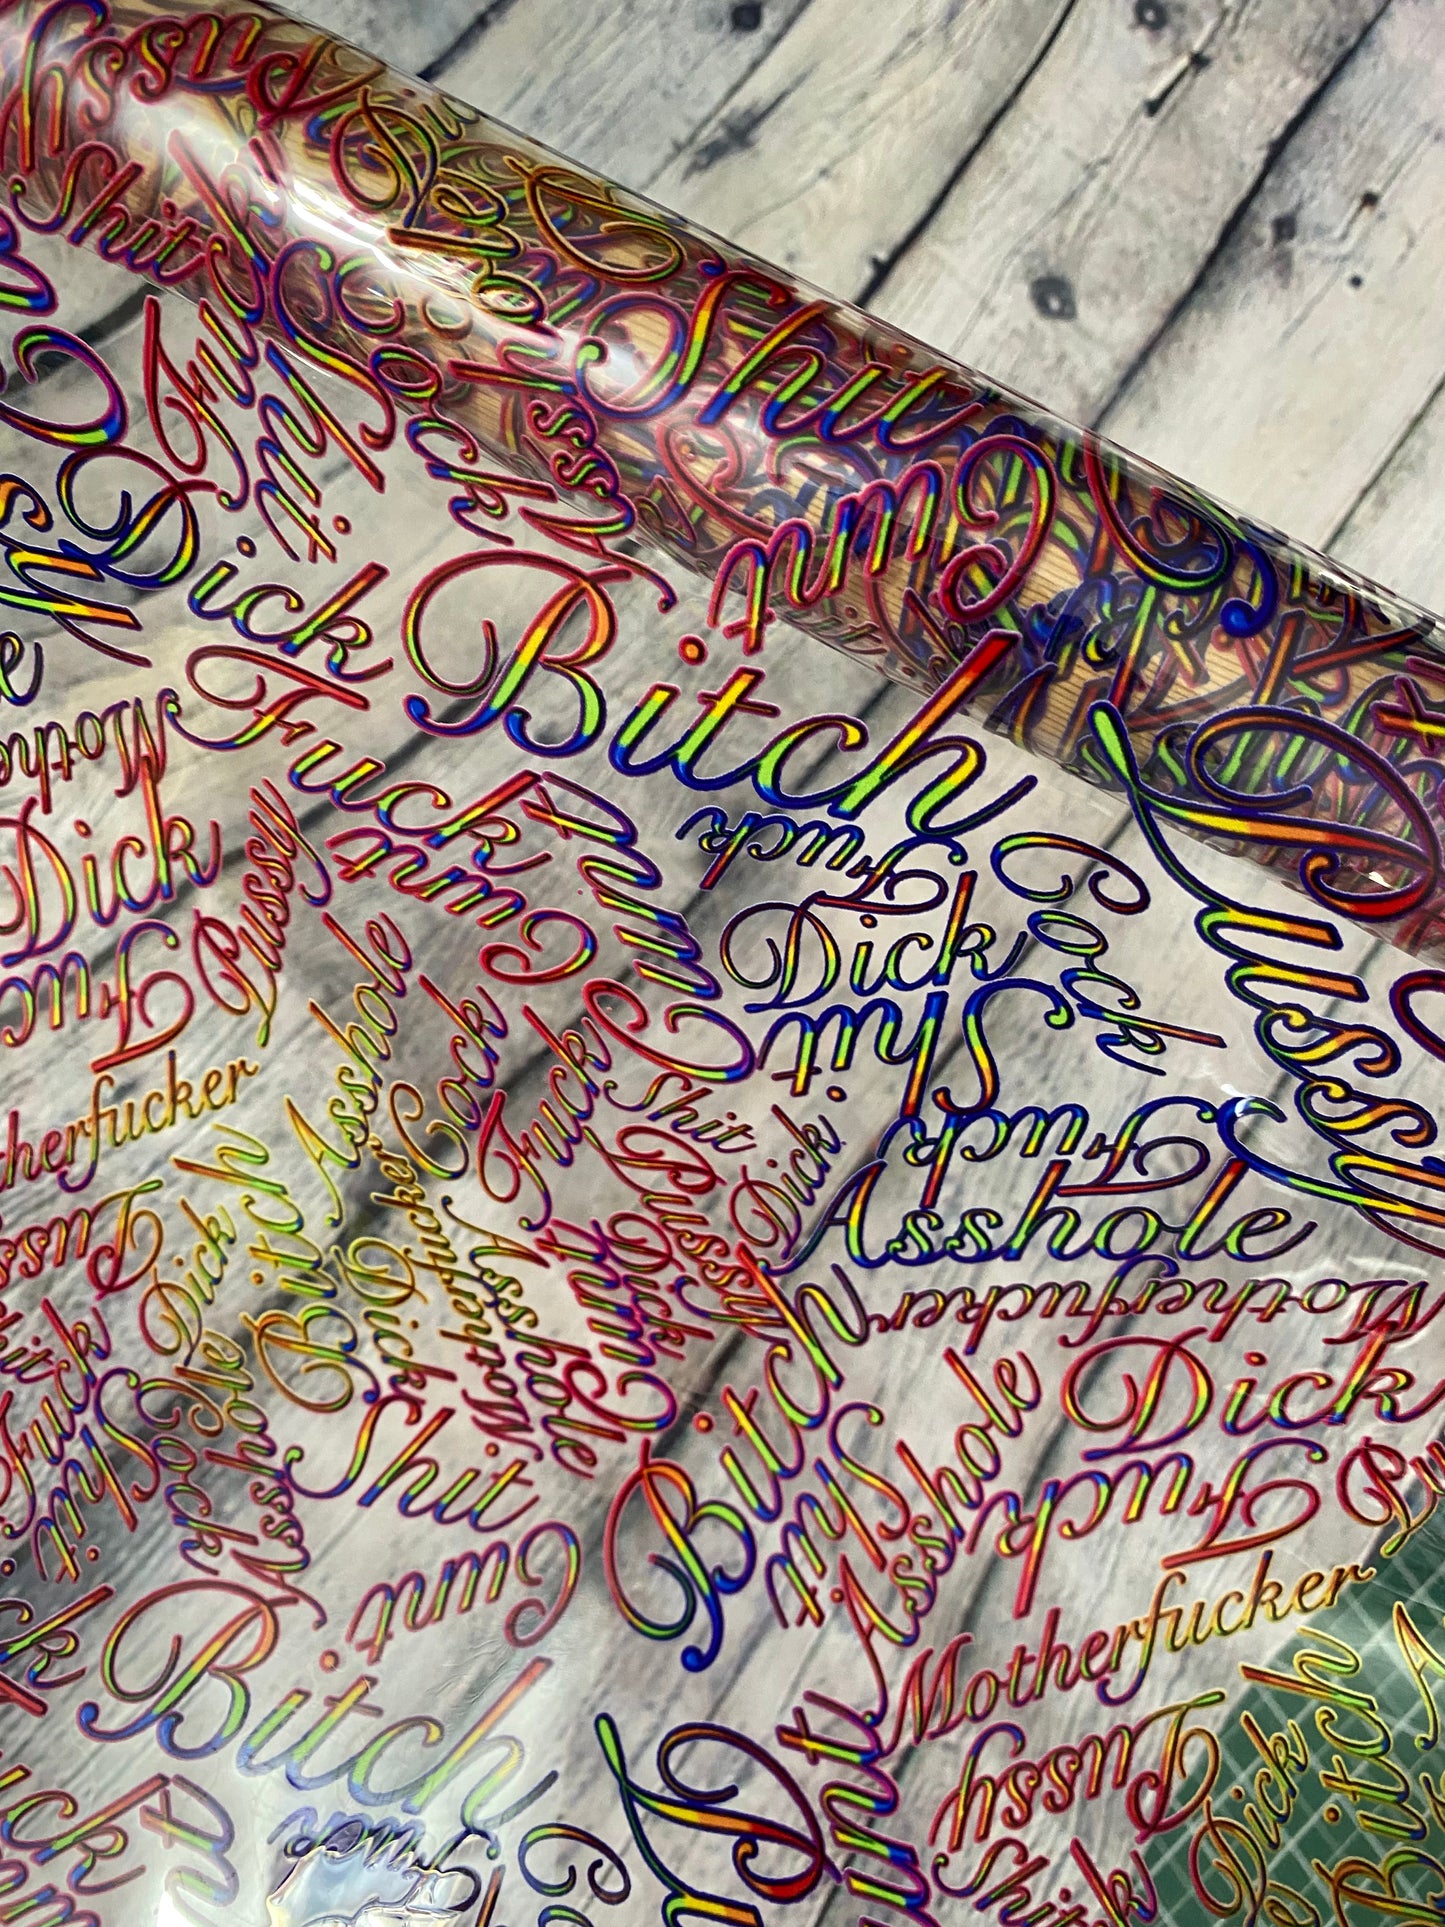 Pussy
Shit
Shit
Cock
Asshole
Shit
Cunt
Dick
Bitch
Fuck
Cunt
Cunt
Fuck
Dick
Cock
Shit
Pussy
Dick
Pussy
Fuck
Asshole
Cock
Fuck
Shit
Dick
Pussy
Fuck
Asshole
Motherfucker
Bitch
Dick
Dick
Motherfucker
Asshole
Cunt
Dick
Shit
Pussy
Fuck
Shit
Cock
Asshole
Bitch
Shit
Asshole
Dick
Fuck
Motherfucker
Cunt
Bitch
Fuck
Cunt
Pussy
Shit
Dick
Bitch